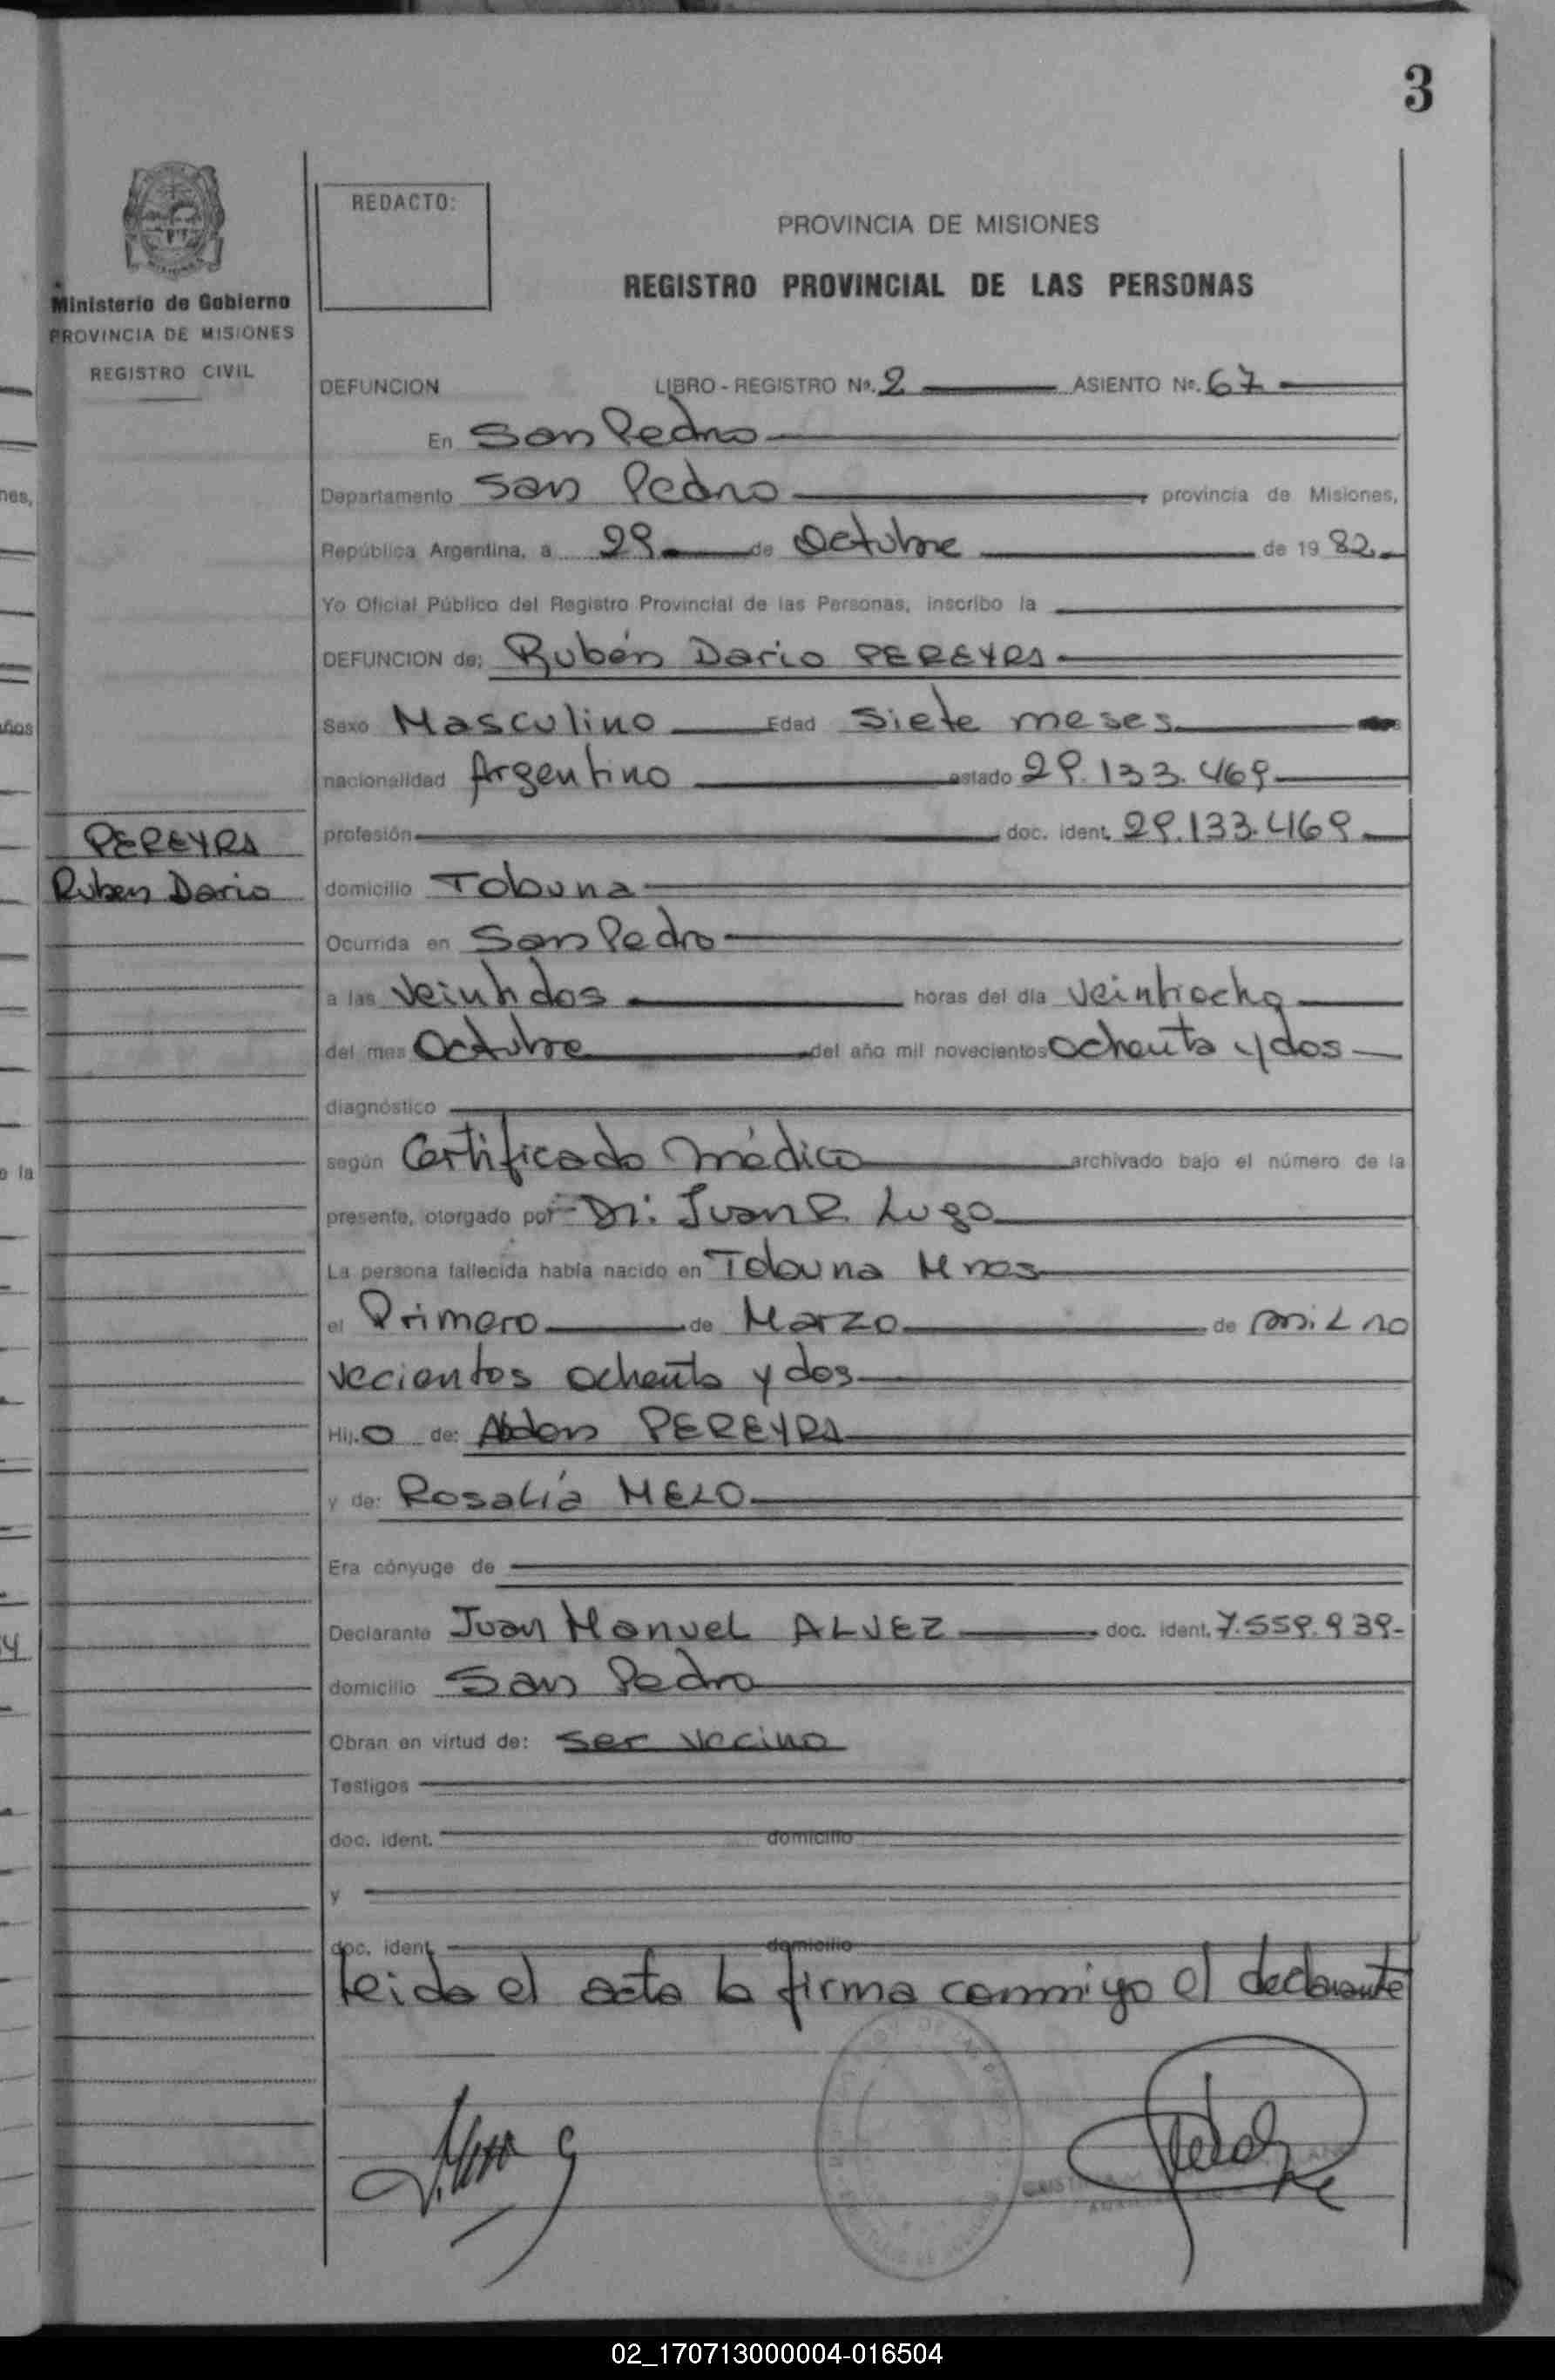 3
REDACTO:
PROVINCIA DE MISIONES
REGISTRO PROVINCIAL DE LAS PERSONAS
Ministerio de Gobierno
PROVINCIA DE MISIONES
REGISTRO CIVIL
DEFUNCION LIBRO - REGISTRO Nº. 2 ASIENTO Nº. 67
En San Pedro
Departamento San Pedro provincia de Misiones,
República Argentina, a 29 de Octubre de 19 82
Yo Oficial Público del Registro Provincial de las Personas, inscribo la
DEFUNCION de: Rubén Dario PEREYRA
Sexo Masculino Edad Siete meses
nacionalidad Argentino estado 29.133.469
PEREYRA
Ruben Dario
profesión doc. ident. 29.133.469
domicilio Tobuna
Ocurrida en San Pedro
a las veintidos horas del día veintiocho
del mes Octubre del año mil novecientos ochenta y dos
diagnóstico
según Certificado médico archivado bajo el número de la
presente, otorgado por Dr: Juan R. Lugo
La persona fallecida había nacido en Tobuna Mnes
el Primero de Marzo de mil no
vecientos ochenta y dos
Hij.o de: Abdon PEREYRA
y de: Rosalía MELO
Era cónyuge de
Declarante Juan Manuel ALVEZ doc. ident. 7.559.939-
domicilio San Pedro
Obran en virtud de: ser vecino
Testigos
doc. ident. domicilio
y
doc. ident. domicilio
leida el acta la firma conmigo el declarante
nes,
años
e la
02_170713000004-016504